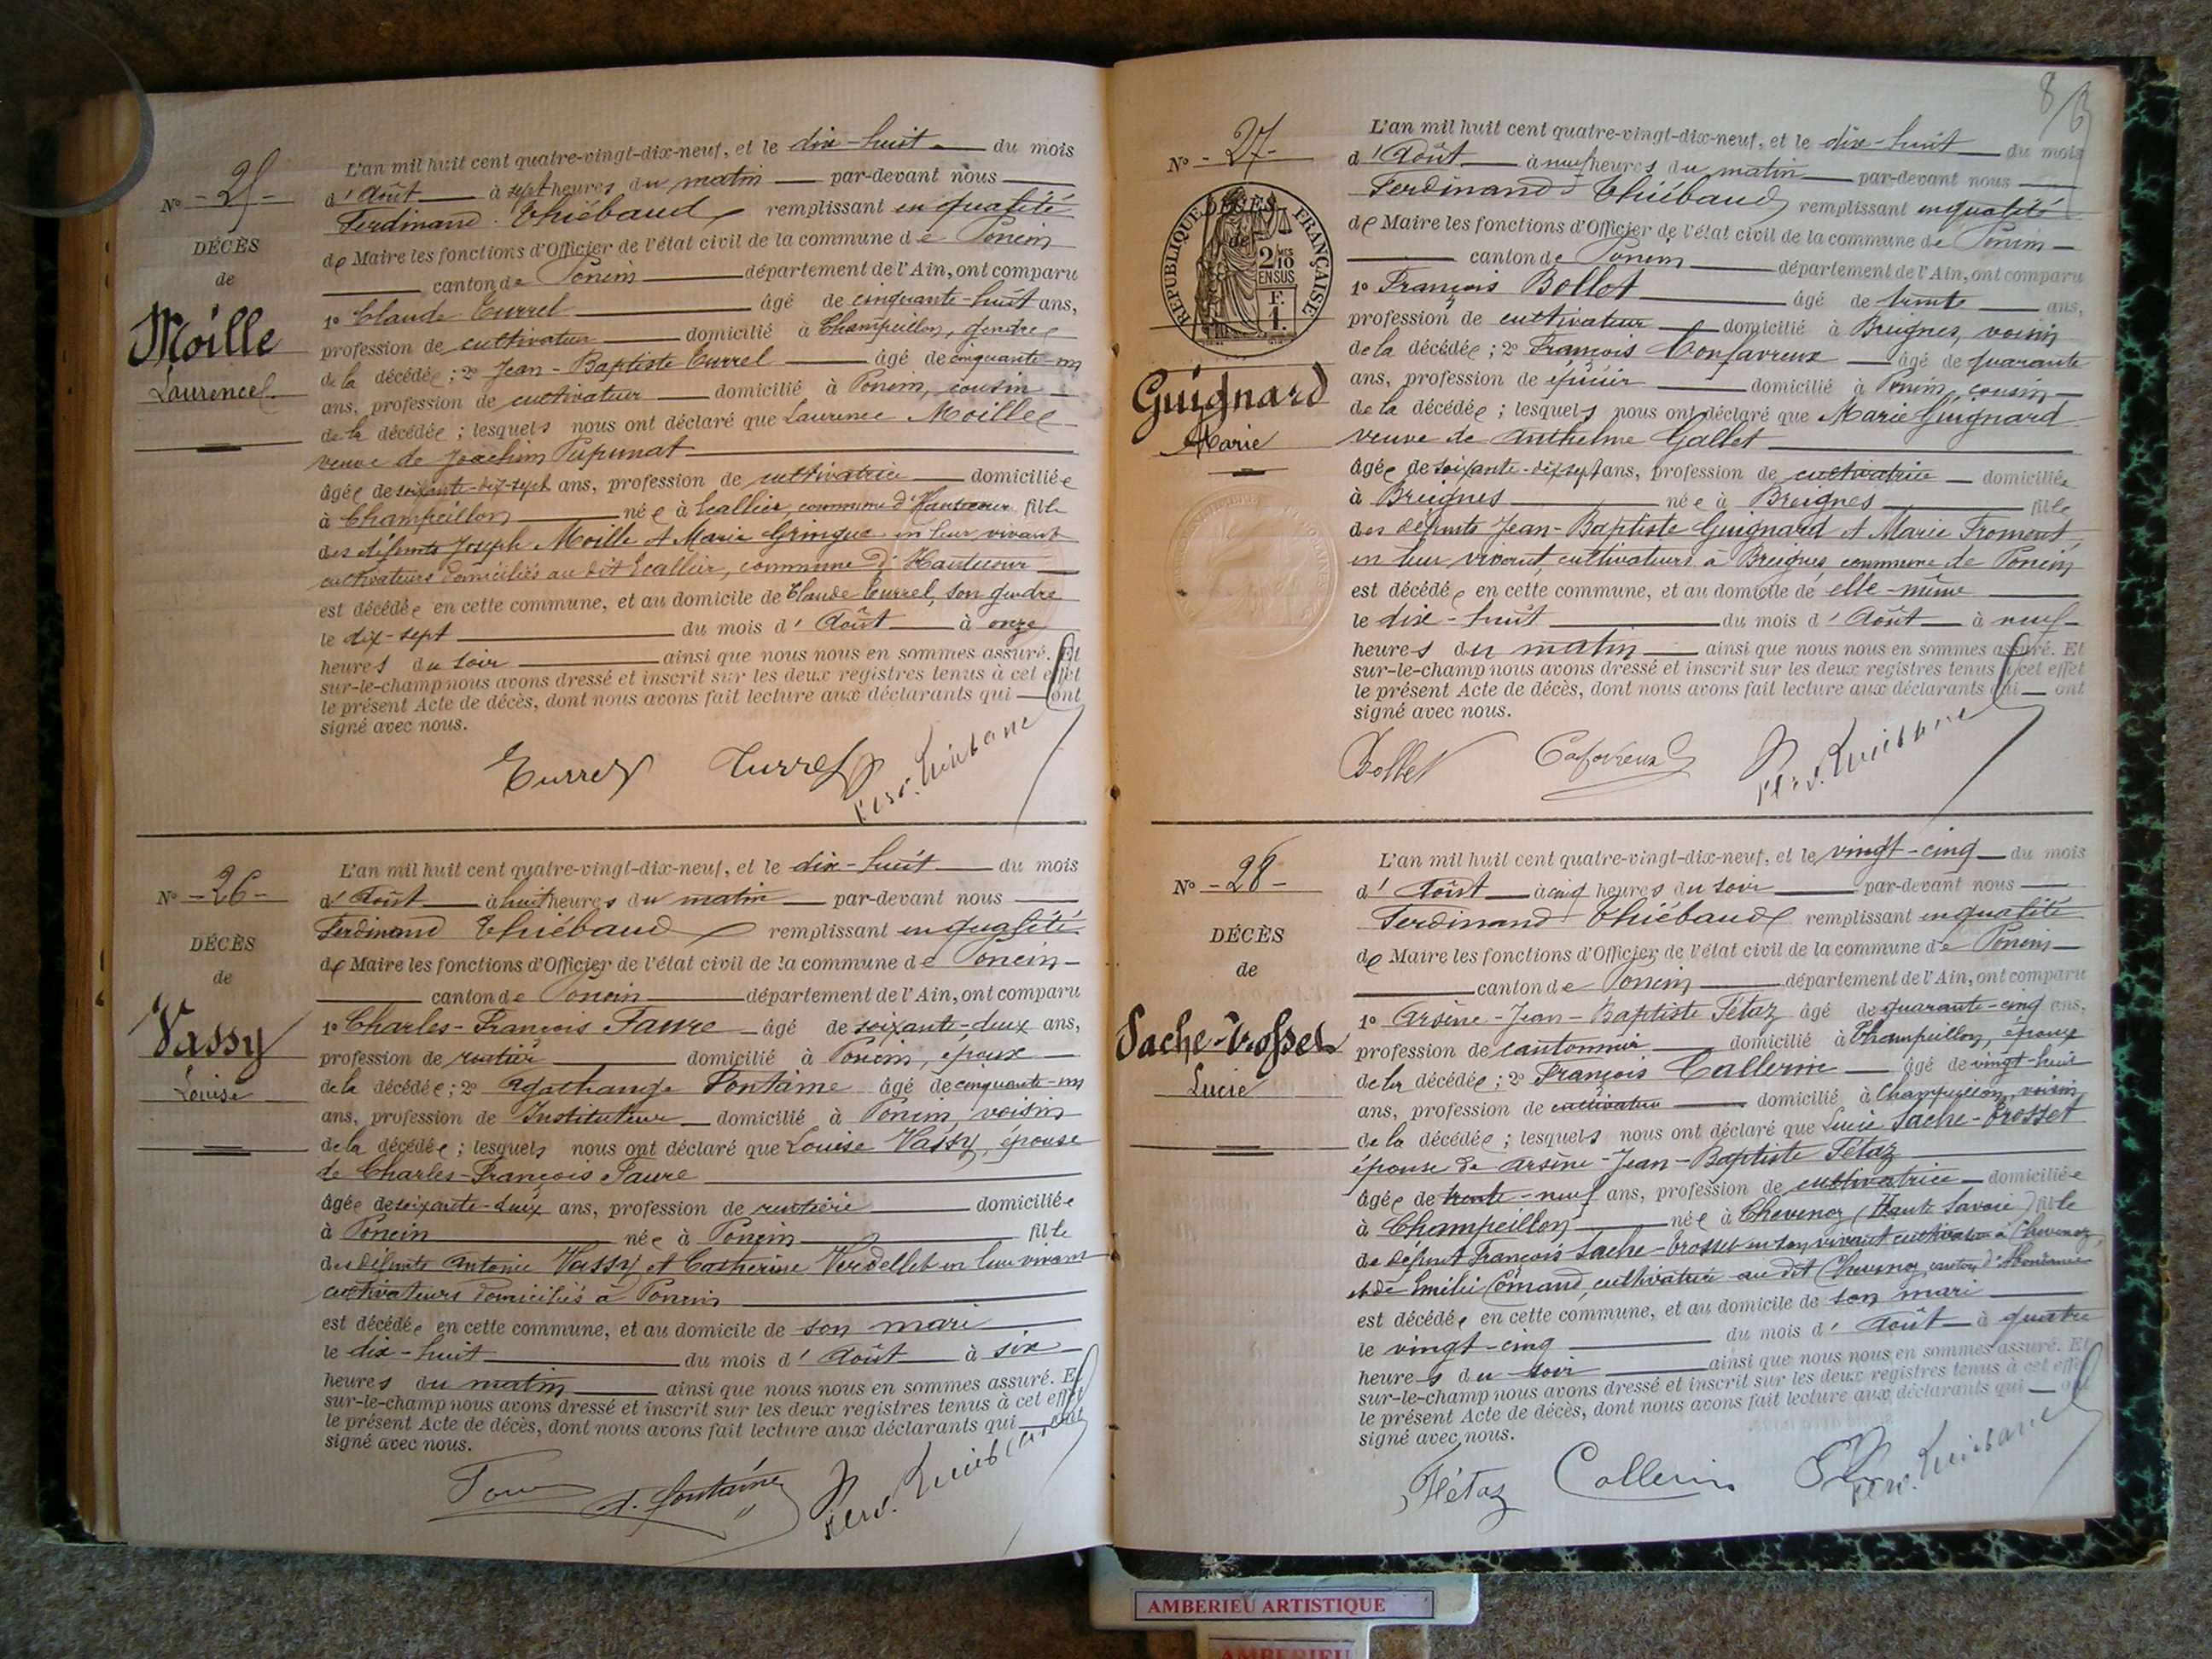 N° - 25 -
DÉCÈS
de
Moille
Laurence
L'an mil huit cent quatre-vingt-dix-neuf, et le dix-huit du mois
d'Août à sept heures du matin par-devant nous
Ferdinand Thiébaud remplissant en qualité
de Maire les fonctions d'Officier de l'état civil de la commune de Poncin
canton de Poncin département de l'Ain, ont comparu
1° Claude Turrel âgé de cinquante-huit ans,
profession de cultivateur domicilié à Champeillon, gendre
de la décédée ; 2° Jean-Baptiste Turrel âgé de cinquante-un
ans, profession de cultivateur domicilié à Poncin, cousin
de la décédée ; lesquels nous ont déclaré que Laurence Moille
veuve de Joachim Pupunat
âgée de soixante-dix-sept ans, profession de cultivatrice domiciliée
à Champeillon née à Ecallier, commune d'Hautecour fille
des défunts Joseph Moille et Marie Gringue en leur vivant
cultivateurs domiciliés au dit Ecallier, commune d'Hautecour
est décédée en cette commune, et au domicile de Claude Turrel, son gendre
le dix-sept du mois d'Août à onze
heures du soir ainsi que nous nous en sommes assuré. Et
sur-le-champ nous avons dressé et inscrit sur les deux registres tenus à cet effet
le présent Acte de décès, dont nous avons fait lecture aux déclarants qui ont
signé avec nous.
Turrel Turrel Ferd. Thiébaud
N° - 26 -
DÉCÈS
de
Vassy
Louise
L'an mil huit cent quatre-vingt-dix-neuf, et le dix-huit du mois
d'Août à huit heures du matin par-devant nous
Ferdinand Thiébaud remplissant en qualité
de Maire les fonctions d'Officier de l'état civil de la commune de Poncin
canton de Poncin département de l'Ain, ont comparu
1° Charles-François Faure âgé de soixante-deux ans,
profession de rentier domicilié à Poncin, époux
de la décédée ; 2° Agathange Fontaine âgé de cinquante-un
ans, profession de Instituteur domicilié à Poncin, voisin
de la décédée ; lesquels nous ont déclaré que Louise Vassy, épouse
de Charles-François Faure
âgée de soixante-deux ans, profession de rentière domiciliée
à Poncin née à Poncin fille
des défunts Antoine Vassy et Catherine Verdellet en leur vivant
cultivateurs domiciliés à Poncin
est décédée en cette commune, et au domicile de son mari
le dix-huit du mois d'Août à six
heures du matin ainsi que nous nous en sommes assuré. Et
sur-le-champ nous avons dressé et inscrit sur les deux registres tenus à cet effet
le présent Acte de décès, dont nous avons fait lecture aux déclarants qui ont
signé avec nous.
Faure A. Fontaine Ferd. Thiébaud
8
N° - 27 -
RÉPUBLIQUE FRANÇAISE
2/10 EN SUS
F. 1.
DÉCÈS
de
Guignard
Marie
L'an mil huit cent quatre-vingt-dix-neuf, et le dix-huit du mois
d'Août à neuf heures du matin par-devant nous
Ferdinand Thiébaud remplissant en qualité
de Maire les fonctions d'Officier de l'état civil de la commune de Poncin
canton de Poncin département de l'Ain, ont comparu
1° François Bollot âgé de trente ans,
profession de cultivateur domicilié à Breignes, voisin
de la décédée ; 2° François Confavreux âgé de quarante
ans, profession de épicier domicilié à Poncin, cousin
de la décédée ; lesquels nous ont déclaré que Marie Guignard
veuve de Anthelme Gallet
âgée de soixante-dix-sept ans, profession de cultivatrice domiciliée
à Breignes née à Breignes fille
des défunts Jean-Baptiste Guignard et Marie Froment,
en leur vivant cultivateurs à Breignes, commune de Poncin
est décédée en cette commune, et au domicile de elle-même
le dix-huit du mois d'Août à neuf
heures du matin ainsi que nous nous en sommes assuré. Et
sur-le-champ nous avons dressé et inscrit sur les deux registres tenus à cet effet
le présent Acte de décès, dont nous avons fait lecture aux déclarants qui ont
signé avec nous.
Bollot Ferd. Thiébaud
N° - 28 -
DÉCÈS
de
Sache-Trosset
Lucie
L'an mil huit cent quatre-vingt-dix-neuf, et le vingt-cinq du mois
d'Août à cinq heures du soir par-devant nous
Ferdinand Thiébaud remplissant en qualité
de Maire les fonctions d'Officier de l'état civil de la commune de Poncin
canton de Poncin département de l'Ain, ont comparu
1° Arsène-Jean-Baptiste Tétaz âgé de quarante-cinq ans,
profession de cantonnier domicilié à Champeillon, époux
de la décédée ; 2° François Callerin âgé de vingt-huit
ans, profession de cultivateur domicilié à Champeillon, voisin
de la décédée ; lesquels nous ont déclaré que Lucie Sache-Trosset
épouse de Arsène-Jean-Baptiste Tétaz
âgée de trente-neuf ans, profession de cultivatrice domiciliée
à Champeillon née à Chevenoz (Haute Savoie) fille
de défunt François Sache-Trosset en son vivant cultivateur à Chevenoz,
et de Emilie Comand, cultivatrice au dit Chevenoz canton d'Abondance
est décédée en cette commune, et au domicile de son mari
le vingt-cinq du mois d'Août à quatre
heures du soir ainsi que nous nous en sommes assuré. Et
sur-le-champ nous avons dressé et inscrit sur les deux registres tenus à cet effet
le présent Acte de décès, dont nous avons fait lecture aux déclarants qui ont
signé avec nous.
Tétaz Callerin Ferd. Thiébaud
AMBERIEU ARTISTIQUE
AMBERIEU